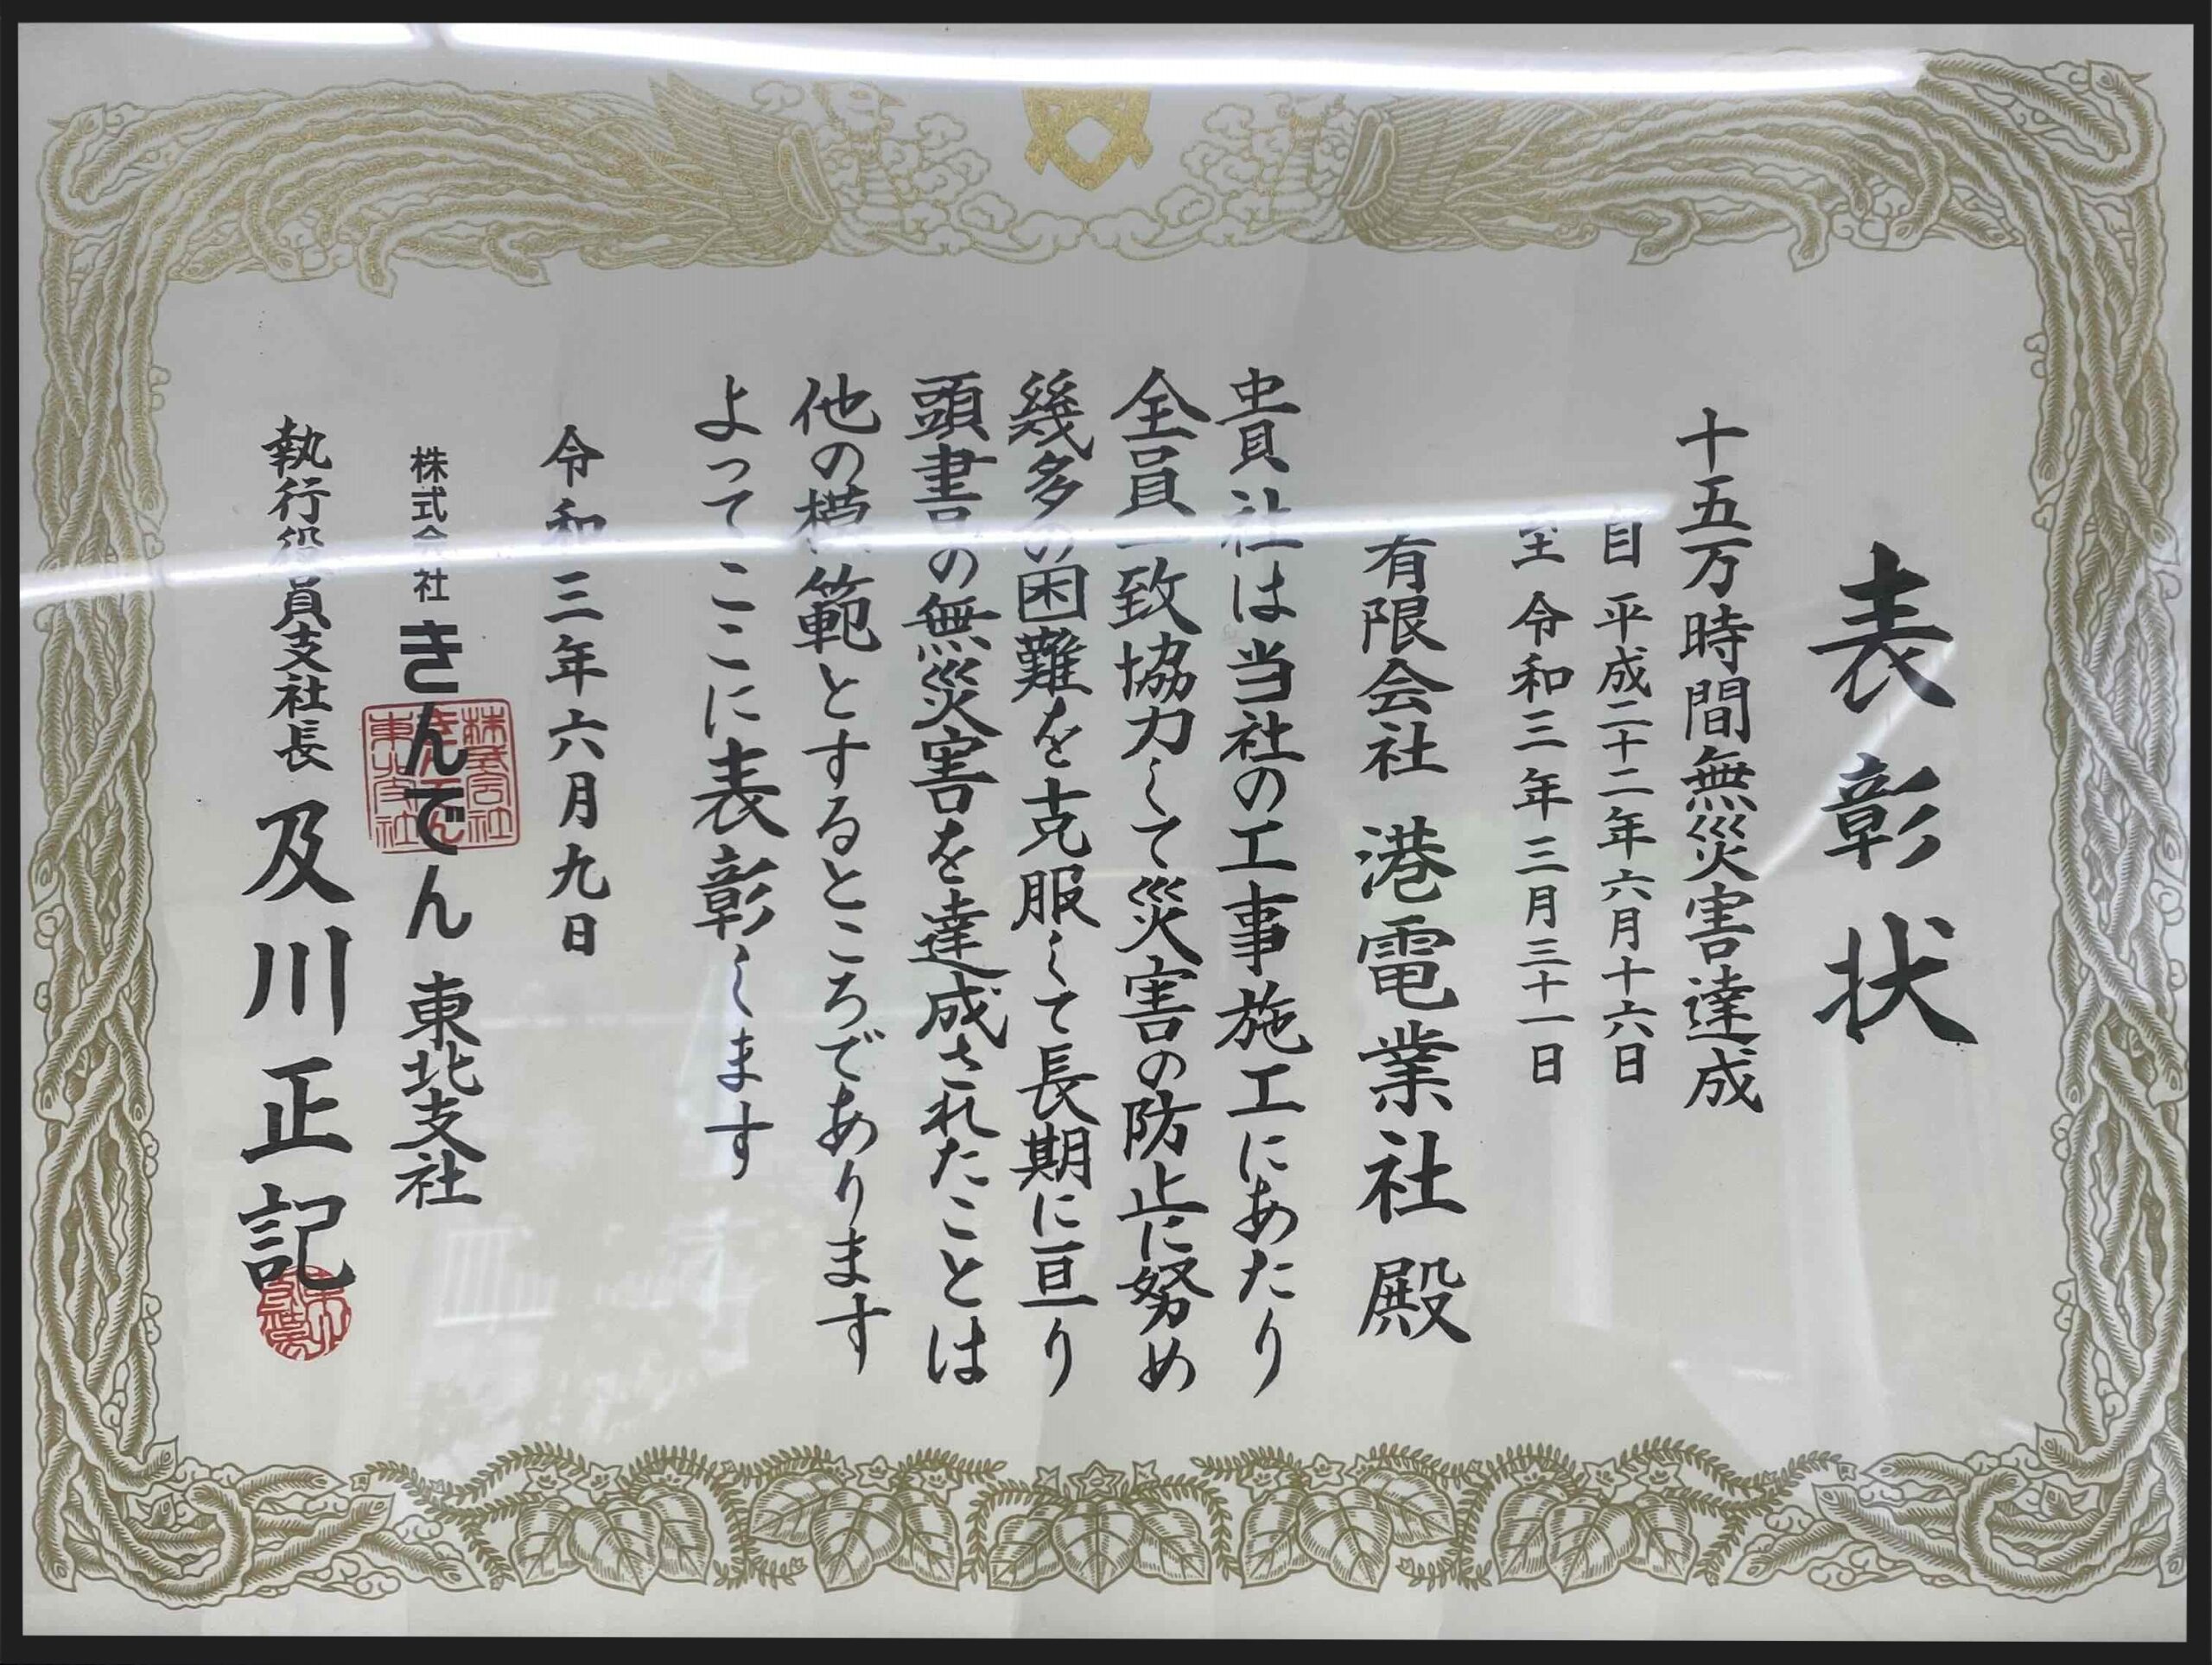 表彰状
十五万時間無災害達成
自 平成二十二年六月十六日
至 令和三年三月三十一日
有限会社 港電業社 殿
貴社は当社の工事施工にあたり
全員一致協力して災害の防止に努め
幾多の困難を克服して長期に亘り
頭書の無災害を達成されたことは
他の模範とするところであります
よってここに表彰します
令和三年六月九日
株式会社 きんでん 東北支社
株式会社
きんでん
東北支社
執行役員支社長 及川正記